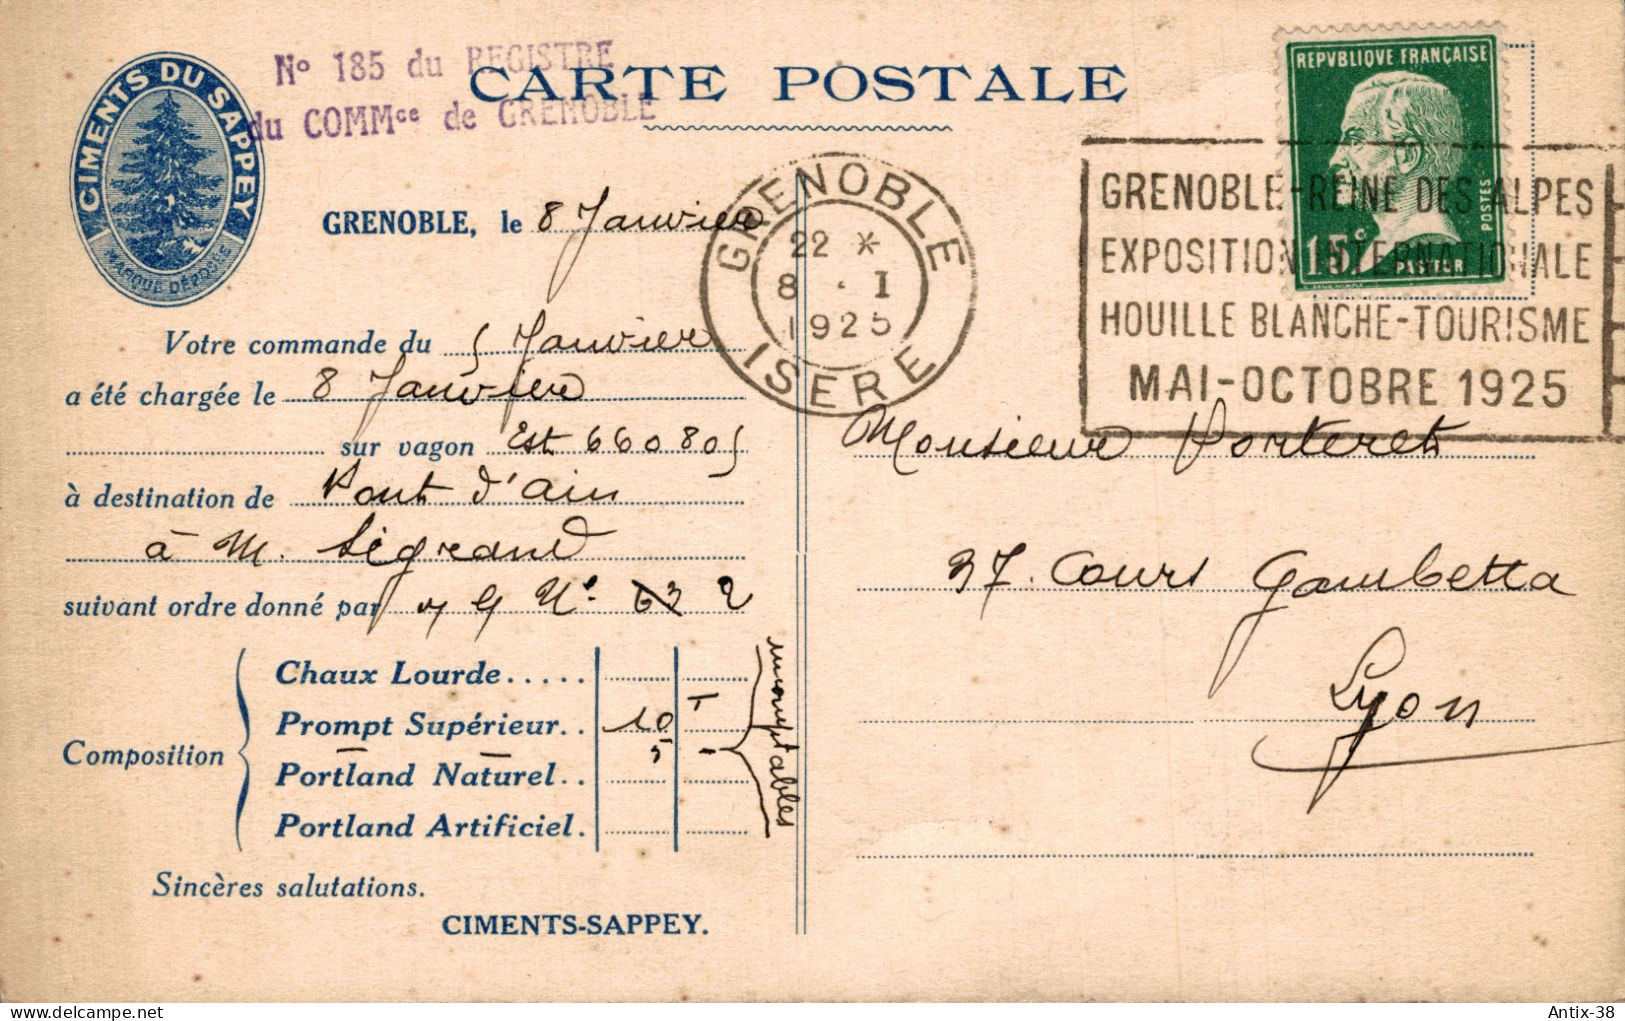 CIMENTS DU SAPPEY
MARQUE DÉPOSÉE
Nº 185 du REGISTRE
du COMMce de GRENOBLE
CARTE POSTALE
GRENOBLE, le 8 Janvier
Votre commande du 5 Janvier
a été chargée le 8 Janvier
sur vagon Est 660805
à destination de Pont d'ain
à M. Légrand
suivant ordre donné par
Nº 63 2
Composition
Chaux Lourde.....
Prompt Supérieur.. 10 T
Portland Naturel.. 5 -
Portland Artificiel.
Sincères salutations.
CIMENTS-SAPPEY.
GRENOBLE
22 *
8 . I
1925
ISERE
REPVBLIQVE FRANÇAISE
POSTES
15c
PASTEUR
GRENOBLE-REINE DES ALPES
EXPOSITION INTERNATIONALE
HOUILLE BLANCHE-TOURISME
MAI-OCTOBRE 1925
Monsieur Porteret
37. Cours Gambetta
Lyon
Antix-38